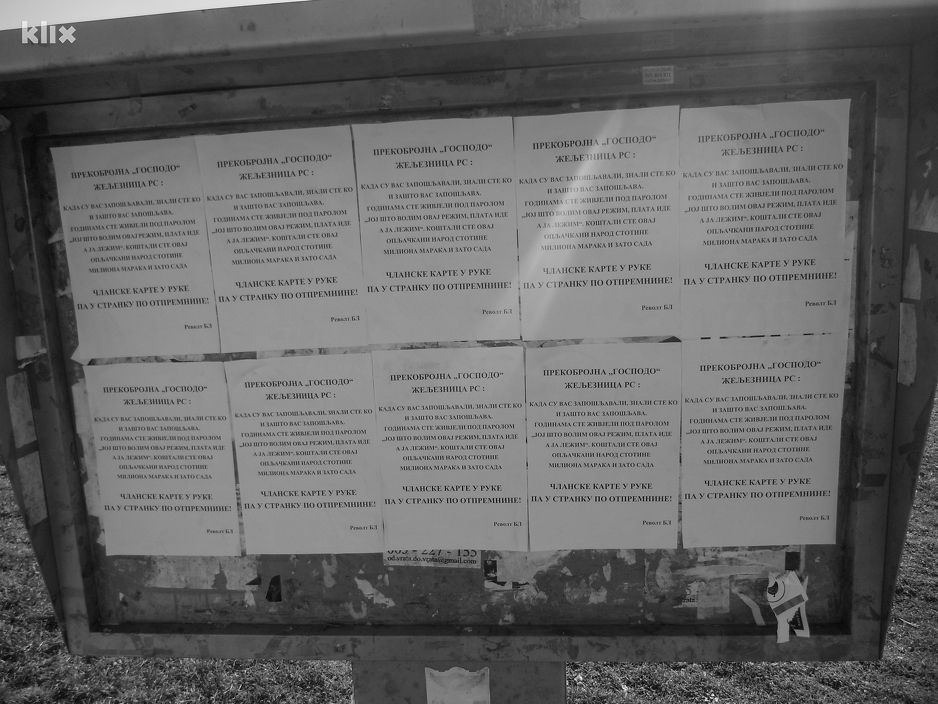 klix
ПРЕКОБРОЈНА „ГОСПОДО“
ЖЕЉЕЗНИЦА РС :
КАДА СУ ВАС ЗАПОШЉАВАЛИ, ЗНАЛИ СТЕ КО
И ЗАШТО ВАС ЗАПОШЉАВА.
ГОДИНАМА СТЕ ЖИВЈЕЛИ ПОД ПАРОЛОМ
„ЈОЈ ШТО ВОЛИМ ОВАЈ РЕЖИМ, ПЛАТА ИДЕ
А ЈА ЛЕЖИМ“. КОШТАЛИ СТЕ ОВАЈ
ОПЉАЧКАНИ НАРОД СТОТИНЕ
МИЛИОНА МАРАКА И ЗАТО САДА
ЧЛАНСКЕ КАРТЕ У РУКЕ
ПА У СТРАНКУ ПО ОТПРЕМНИНЕ!
Револт БЛ
ПРЕКОБРОЈНА „ГОСПОДО“
ЖЕЉЕЗНИЦА РС :
КАДА СУ ВАС ЗАПОШЉАВАЛИ, ЗНАЛИ СТЕ КО
И ЗАШТО ВАС ЗАПОШЉАВА.
ГОДИНАМА СТЕ ЖИВЈЕЛИ ПОД ПАРОЛОМ
„ЈОЈ ШТО ВОЛИМ ОВАЈ РЕЖИМ, ПЛАТА ИДЕ
А ЈА ЛЕЖИМ“. КОШТАЛИ СТЕ ОВАЈ
ОПЉАЧКАНИ НАРОД СТОТИНЕ
МИЛИОНА МАРАКА И ЗАТО САДА
ЧЛАНСКЕ КАРТЕ У РУКЕ
ПА У СТРАНКУ ПО ОТПРЕМНИНЕ!
Револт БЛ
ПРЕКОБРОЈНА „ГОСПОДО“
ЖЕЉЕЗНИЦА РС :
КАДА СУ ВАС ЗАПОШЉАВАЛИ, ЗНАЛИ СТЕ КО
И ЗАШТО ВАС ЗАПОШЉАВА.
ГОДИНАМА СТЕ ЖИВЈЕЛИ ПОД ПАРОЛОМ
„ЈОЈ ШТО ВОЛИМ ОВАЈ РЕЖИМ, ПЛАТА ИДЕ
А ЈА ЛЕЖИМ“. КОШТАЛИ СТЕ ОВАЈ
ОПЉАЧКАНИ НАРОД СТОТИНЕ
МИЛИОНА МАРАКА И ЗАТО САДА
ЧЛАНСКЕ КАРТЕ У РУКЕ
ПА У СТРАНКУ ПО ОТПРЕМНИНЕ!
Револт БЛ
ПРЕКОБРОЈНА „ГОСПОДО“
ЖЕЉЕЗНИЦА РС :
КАДА СУ ВАС ЗАПОШЉАВАЛИ, ЗНАЛИ СТЕ КО
И ЗАШТО ВАС ЗАПОШЉАВА.
ГОДИНАМА СТЕ ЖИВЈЕЛИ ПОД ПАРОЛОМ
„ЈОЈ ШТО ВОЛИМ ОВАЈ РЕЖИМ, ПЛАТА ИДЕ
А ЈА ЛЕЖИМ“. КОШТАЛИ СТЕ ОВАЈ
ОПЉАЧКАНИ НАРОД СТОТИНЕ
МИЛИОНА МАРАКА И ЗАТО САДА
ЧЛАНСКЕ КАРТЕ У РУКЕ
ПА У СТРАНКУ ПО ОТПРЕМНИНЕ!
Револт БЛ
ПРЕКОБРОЈНА „ГОСПОДО“
ЖЕЉЕЗНИЦА РС :
КАДА СУ ВАС ЗАПОШЉАВАЛИ, ЗНАЛИ СТЕ КО
И ЗАШТО ВАС ЗАПОШЉАВА.
ГОДИНАМА СТЕ ЖИВЈЕЛИ ПОД ПАРОЛОМ
„ЈОЈ ШТО ВОЛИМ ОВАЈ РЕЖИМ, ПЛАТА ИДЕ
А ЈА ЛЕЖИМ“. КОШТАЛИ СТЕ ОВАЈ
ОПЉАЧКАНИ НАРОД СТОТИНЕ
МИЛИОНА МАРАКА И ЗАТО САДА
ЧЛАНСКЕ КАРТЕ У РУКЕ
ПА У СТРАНКУ ПО ОТПРЕМНИНЕ!
Револт БЛ
ПРЕКОБРОЈНА „ГОСПОДО“
ЖЕЉЕЗНИЦА РС :
КАДА СУ ВАС ЗАПОШЉАВАЛИ, ЗНАЛИ СТЕ КО
И ЗАШТО ВАС ЗАПОШЉАВА.
ГОДИНАМА СТЕ ЖИВЈЕЛИ ПОД ПАРОЛОМ
„ЈОЈ ШТО ВОЛИМ ОВАЈ РЕЖИМ, ПЛАТА ИДЕ
А ЈА ЛЕЖИМ“. КОШТАЛИ СТЕ ОВАЈ
ОПЉАЧКАНИ НАРОД СТОТИНЕ
МИЛИОНА МАРАКА И ЗАТО САДА
ЧЛАНСКЕ КАРТЕ У РУКЕ
ПА У СТРАНКУ ПО ОТПРЕМНИНЕ!
Револт БЛ
ПРЕКОБРОЈНА „ГОСПОДО“
ЖЕЉЕЗНИЦА РС :
КАДА СУ ВАС ЗАПОШЉАВАЛИ, ЗНАЛИ СТЕ КО
И ЗАШТО ВАС ЗАПОШЉАВА.
ГОДИНАМА СТЕ ЖИВЈЕЛИ ПОД ПАРОЛОМ
„ЈОЈ ШТО ВОЛИМ ОВАЈ РЕЖИМ, ПЛАТА ИДЕ
А ЈА ЛЕЖИМ“. КОШТАЛИ СТЕ ОВАЈ
ОПЉАЧКАНИ НАРОД СТОТИНЕ
МИЛИОНА МАРАКА И ЗАТО САДА
ЧЛАНСКЕ КАРТЕ У РУКЕ
ПА У СТРАНКУ ПО ОТПРЕМНИНЕ!
Револт БЛ
ПРЕКОБРОЈНА „ГОСПОДО“
ЖЕЉЕЗНИЦА РС :
КАДА СУ ВАС ЗАПОШЉАВАЛИ, ЗНАЛИ СТЕ КО
И ЗАШТО ВАС ЗАПОШЉАВА.
ГОДИНАМА СТЕ ЖИВЈЕЛИ ПОД ПАРОЛОМ
„ЈОЈ ШТО ВОЛИМ ОВАЈ РЕЖИМ, ПЛАТА ИДЕ
А ЈА ЛЕЖИМ“. КОШТАЛИ СТЕ ОВАЈ
ОПЉАЧКАНИ НАРОД СТОТИНЕ
МИЛИОНА МАРАКА И ЗАТО САДА
ЧЛАНСКЕ КАРТЕ У РУКЕ
ПА У СТРАНКУ ПО ОТПРЕМНИНЕ!
Револт БЛ
ПРЕКОБРОЈНА „ГОСПОДО“
ЖЕЉЕЗНИЦА РС :
КАДА СУ ВАС ЗАПОШЉАВАЛИ, ЗНАЛИ СТЕ КО
И ЗАШТО ВАС ЗАПОШЉАВА.
ГОДИНАМА СТЕ ЖИВЈЕЛИ ПОД ПАРОЛОМ
„ЈОЈ ШТО ВОЛИМ ОВАЈ РЕЖИМ, ПЛАТА ИДЕ
А ЈА ЛЕЖИМ“. КОШТАЛИ СТЕ ОВАЈ
ОПЉАЧКАНИ НАРОД СТОТИНЕ
МИЛИОНА МАРАКА И ЗАТО САДА
ЧЛАНСКЕ КАРТЕ У РУКЕ
ПА У СТРАНКУ ПО ОТПРЕМНИНЕ!
Револт БЛ
ПРЕКОБРОЈНА „ГОСПОДО“
ЖЕЉЕЗНИЦА РС :
КАДА СУ ВАС ЗАПОШЉАВАЛИ, ЗНАЛИ СТЕ КО
И ЗАШТО ВАС ЗАПОШЉАВА.
ГОДИНАМА СТЕ ЖИВЈЕЛИ ПОД ПАРОЛОМ
„ЈОЈ ШТО ВОЛИМ ОВАЈ РЕЖИМ, ПЛАТА ИДЕ
А ЈА ЛЕЖИМ“. КОШТАЛИ СТЕ ОВАЈ
ОПЉАЧКАНИ НАРОД СТОТИНЕ
МИЛИОНА МАРАКА И ЗАТО САДА
ЧЛАНСКЕ КАРТЕ У РУКЕ
ПА У СТРАНКУ ПО ОТПРЕМНИНЕ!
Револт БЛ
od.vrata.do.vrata@gmail.com